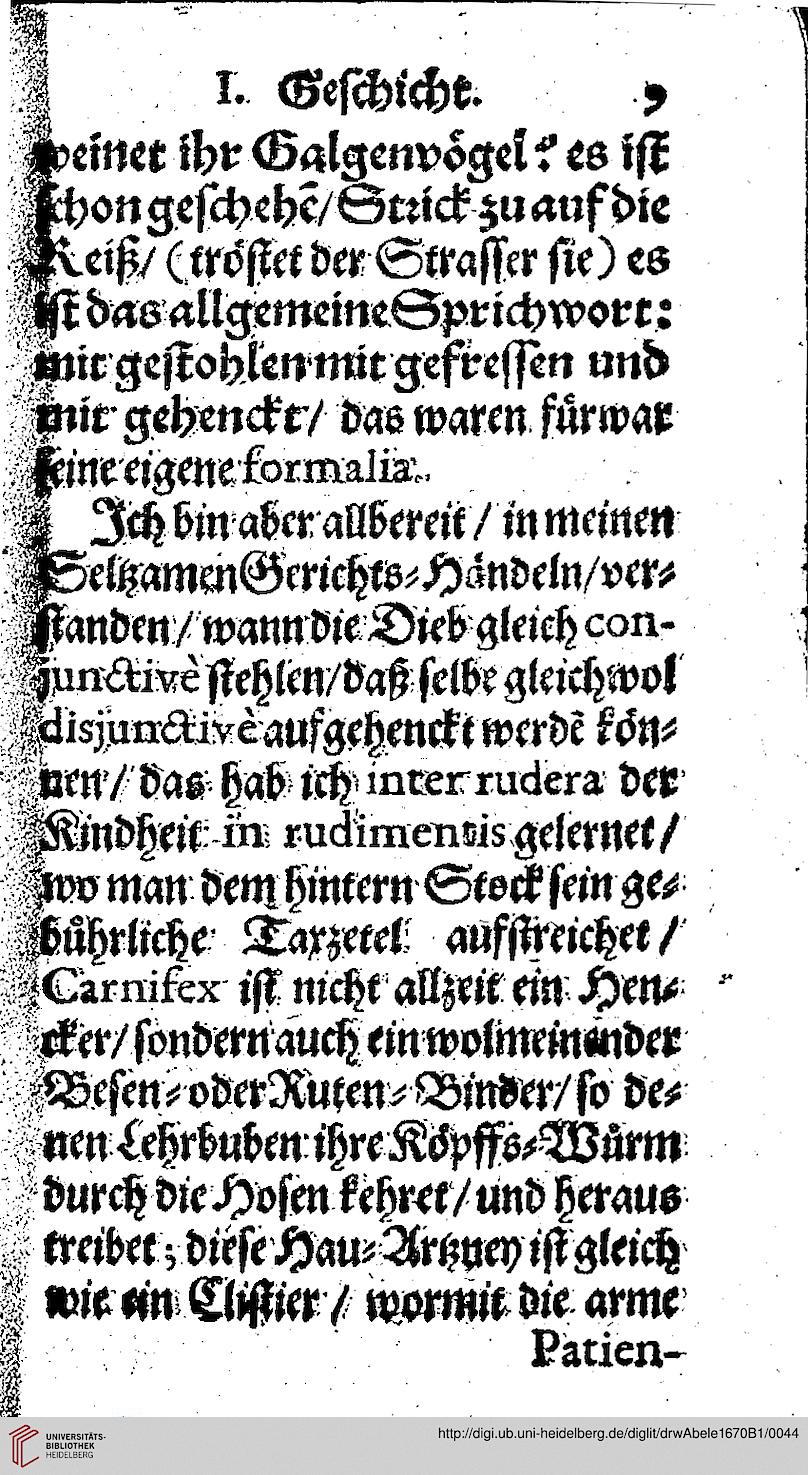 I. Geschicht. 9
weinet ihr Galgenvögel? es ist
schon geschehē/ Strick zu auf die
Reiß/ (tröstet der Strasser sie) es
ist das allgemeine Sprichwort:
mit gestohlen mit gefressen und
mit gehenckt/ das waren fürwar
seine eigene formalia.
Ich bin aber allbereit / in meinen
Seltzamen Gerichts-Händeln/ ver-
standen/ wann die Dieb gleich con-
junctivè stehlen/ daß selbe gleichwol
disjunctivè aufgehenckt werdē kön-
nen/ das hab ich inter rudera der
Kindheit in rudimentis gelernet/
wo man dem hintern Stock sein ge-
bührliche Taxzetel aufstreichet/
Carnifex ist nicht allzeit ein Hen-
cker/ sondern auch ein wolmeinender
Besen- oder Ruten-Binder/ so de-
nen Lehrbuben ihre Köpffs-Würm
durch die Hosen kehret/ und heraus
treibet; diese Hau-Artzney ist gleich
wie ein Clistier / wormit die arme
Patien-
UNIVERSITÄTS-
BIBLIOTHEK
HEIDELBERG
http://digi.ub.uni-heidelberg.de/diglit/drwAbele1670B1/0044